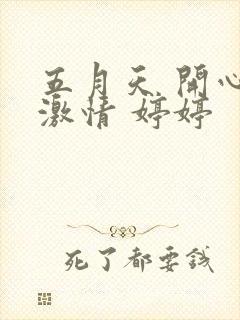 五月天 開心
激情 婷婷
死了都要錢